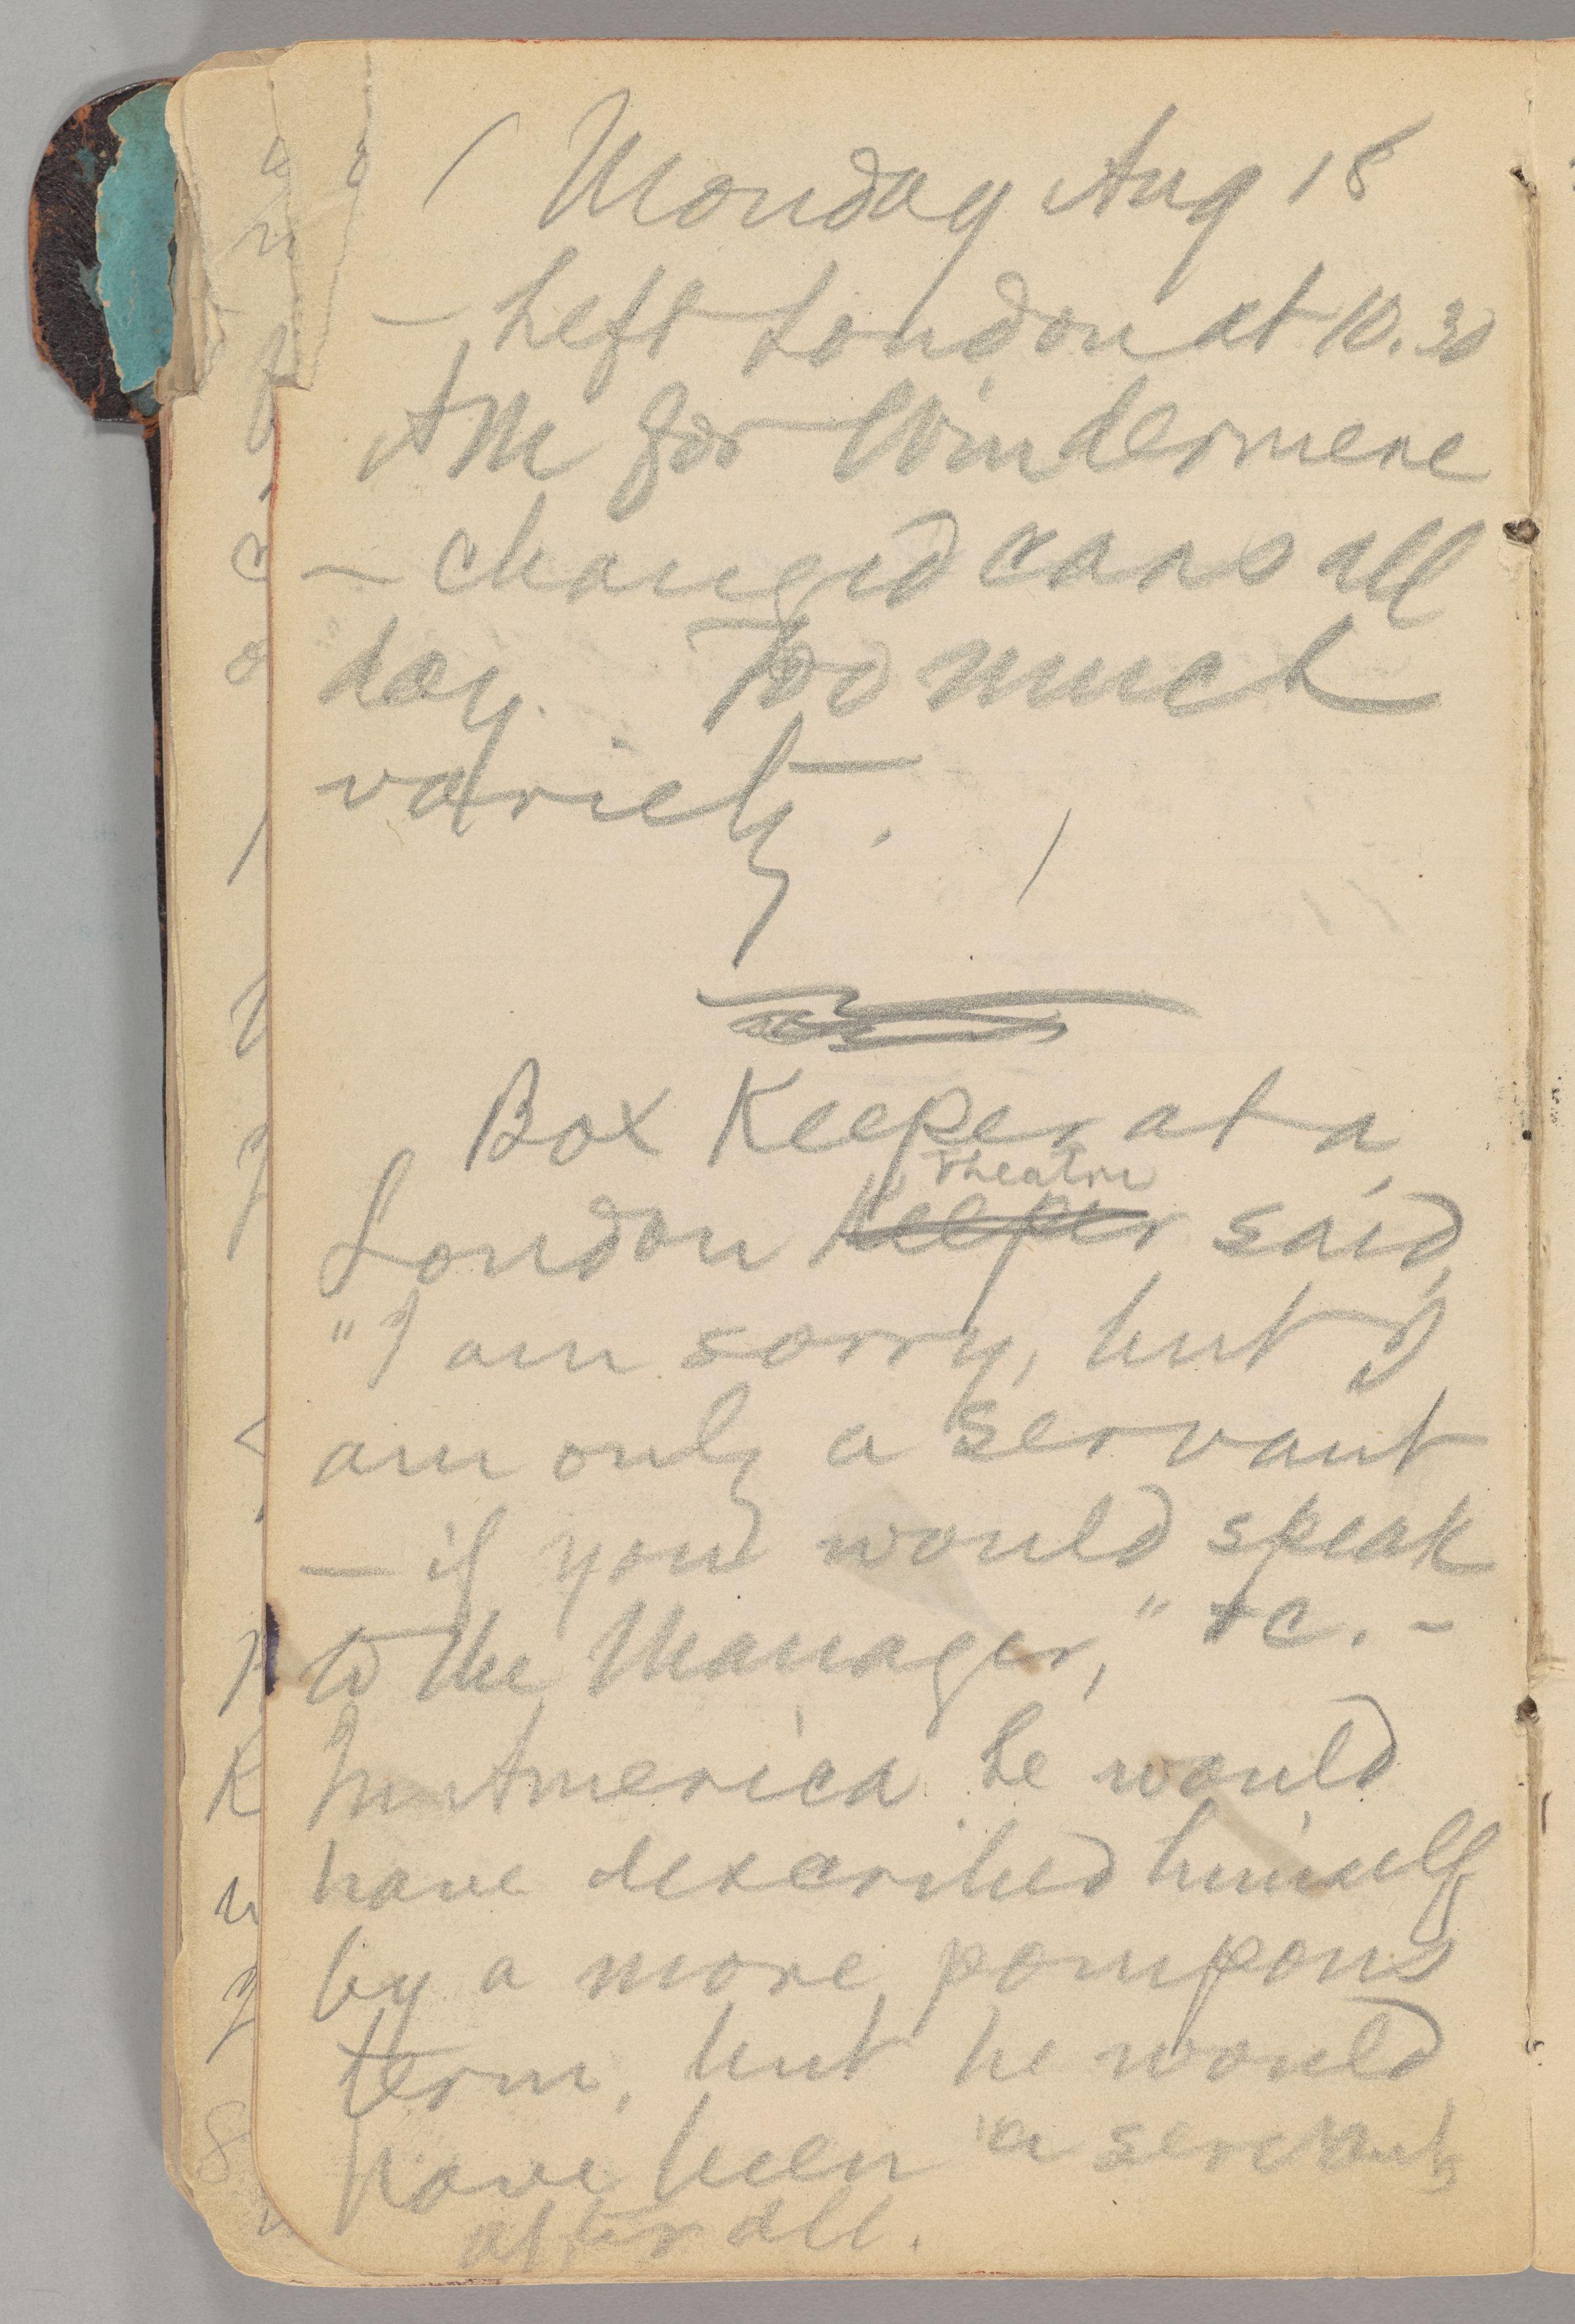 ( Monday Aug 18
– Left London at 10.30
AM for Windermere
– changed cars all
day. Too much
variety. /
Box Keeper at a
Theatre
London Keeper said,
"I am sorry, but I
am only a servant
– if you would speak
to the Manager," &c. –
In America he would
have described himself
by a more pompous
term, but he would
have been "a servant,
after all.